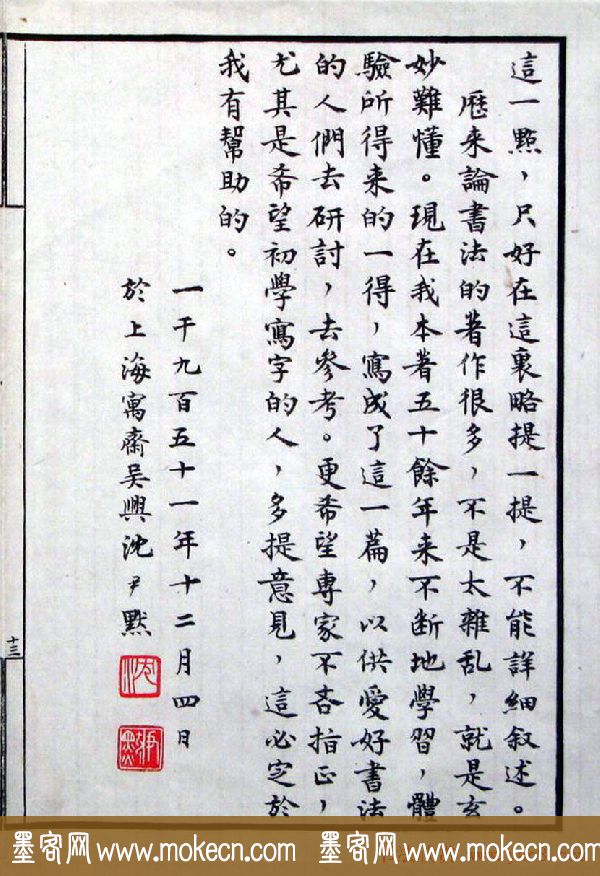 這一點，只好在這裏略提一提，不能詳細叙述。
歷来論書法的著作很多，不是太雜乱，就是玄
妙難懂。現在我本著五十餘年来不断地學習，體
驗所得来的一得，寫成了這一篇，以供愛好書法
的人們去研討，去參考。更希望專家不吝指正，
尤其是希望初學寫字的人，多提意見，這必定於
我有幫助的。
一千九百五十一年十二月四日
於上海寓齋吴興沈尹默
沈
尹默
十三
墨客网 www.mokecn.com 墨客网 www.mokecn.com